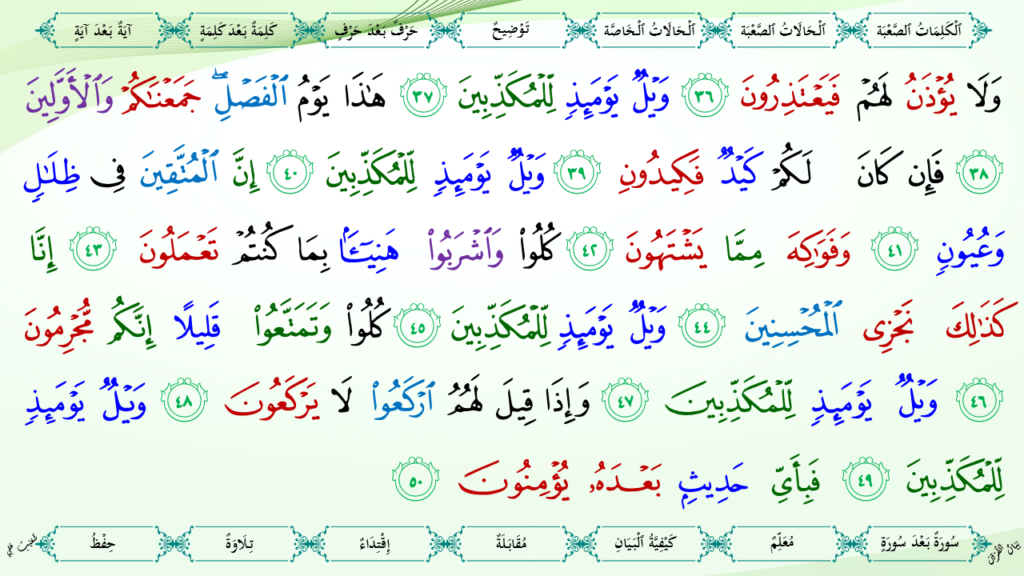 ٱلْكَلِمَاتُ ٱلصَّعْبَة ٱلْحَالَاتُ ٱلصَّعْبَة ٱلْحَالَاتُ ٱلْخَاصَّة تَوْضِيحٌ حَرْفٌ بَعْدَ حَرْفٍ كَلِمَةٌ بَعْدَ كَلِمَةٍ آيَةٌ بَعْدَ آيَةٍ
وَلَا يُؤْذَنُ لَهُمْ فَيَعْتَذِرُونَ ٣٦ وَيْلٌ يَوْمَئِذٍ لِّلْمُكَذِّبِينَ ٣٧ هَٰذَا يَوْمُ ٱلْفَصْلِ ۖ جَمَعْنَٰكُمْ وَٱلْأَوَّلِينَ
٣٨ فَإِن كَانَ لَكُمْ كَيْدٌ فَكِيدُونِ ٣٩ وَيْلٌ يَوْمَئِذٍ لِّلْمُكَذِّبِينَ ٤٠ إِنَّ ٱلْمُتَّقِينَ فِى ظِلَٰلٍ
وَعُيُونٍ ٤١ وَفَوَٰكِهَ مِمَّا يَشْتَهُونَ ٤٢ كُلُوا۟ وَٱشْرَبُوا۟ هَنِيٓـًٔۢا بِمَا كُنتُمْ تَعْمَلُونَ ٤٣ إِنَّا
كَذَٰلِكَ نَجْزِى ٱلْمُحْسِنِينَ ٤٤ وَيْلٌ يَوْمَئِذٍ لِّلْمُكَذِّبِينَ ٤٥ كُلُوا۟ وَتَمَتَّعُوا۟ قَلِيلًا إِنَّكُم مُّجْرِمُونَ
٤٦ وَيْلٌ يَوْمَئِذٍ لِّلْمُكَذِّبِينَ ٤٧ وَإِذَا قِيلَ لَهُمُ ٱرْكَعُوا۟ لَا يَرْكَعُونَ ٤٨ وَيْلٌ يَوْمَئِذٍ
لِّلْمُكَذِّبِينَ ٤٩ فَبِأَىِّ حَدِيثٍۭ بَعْدَهُۥ يُؤْمِنُونَ ٥٠
بَيَانُ ٱلْقُرْآن سُورَةٌ بَعْدَ سُورَةٍ مُعَلِّمٌ كَيْفِيَّةُ ٱلْبَيَانِ مُقَابَلَةٌ إِقْتِدَاءٌ تِلَاوَةٌ حِفْظُ